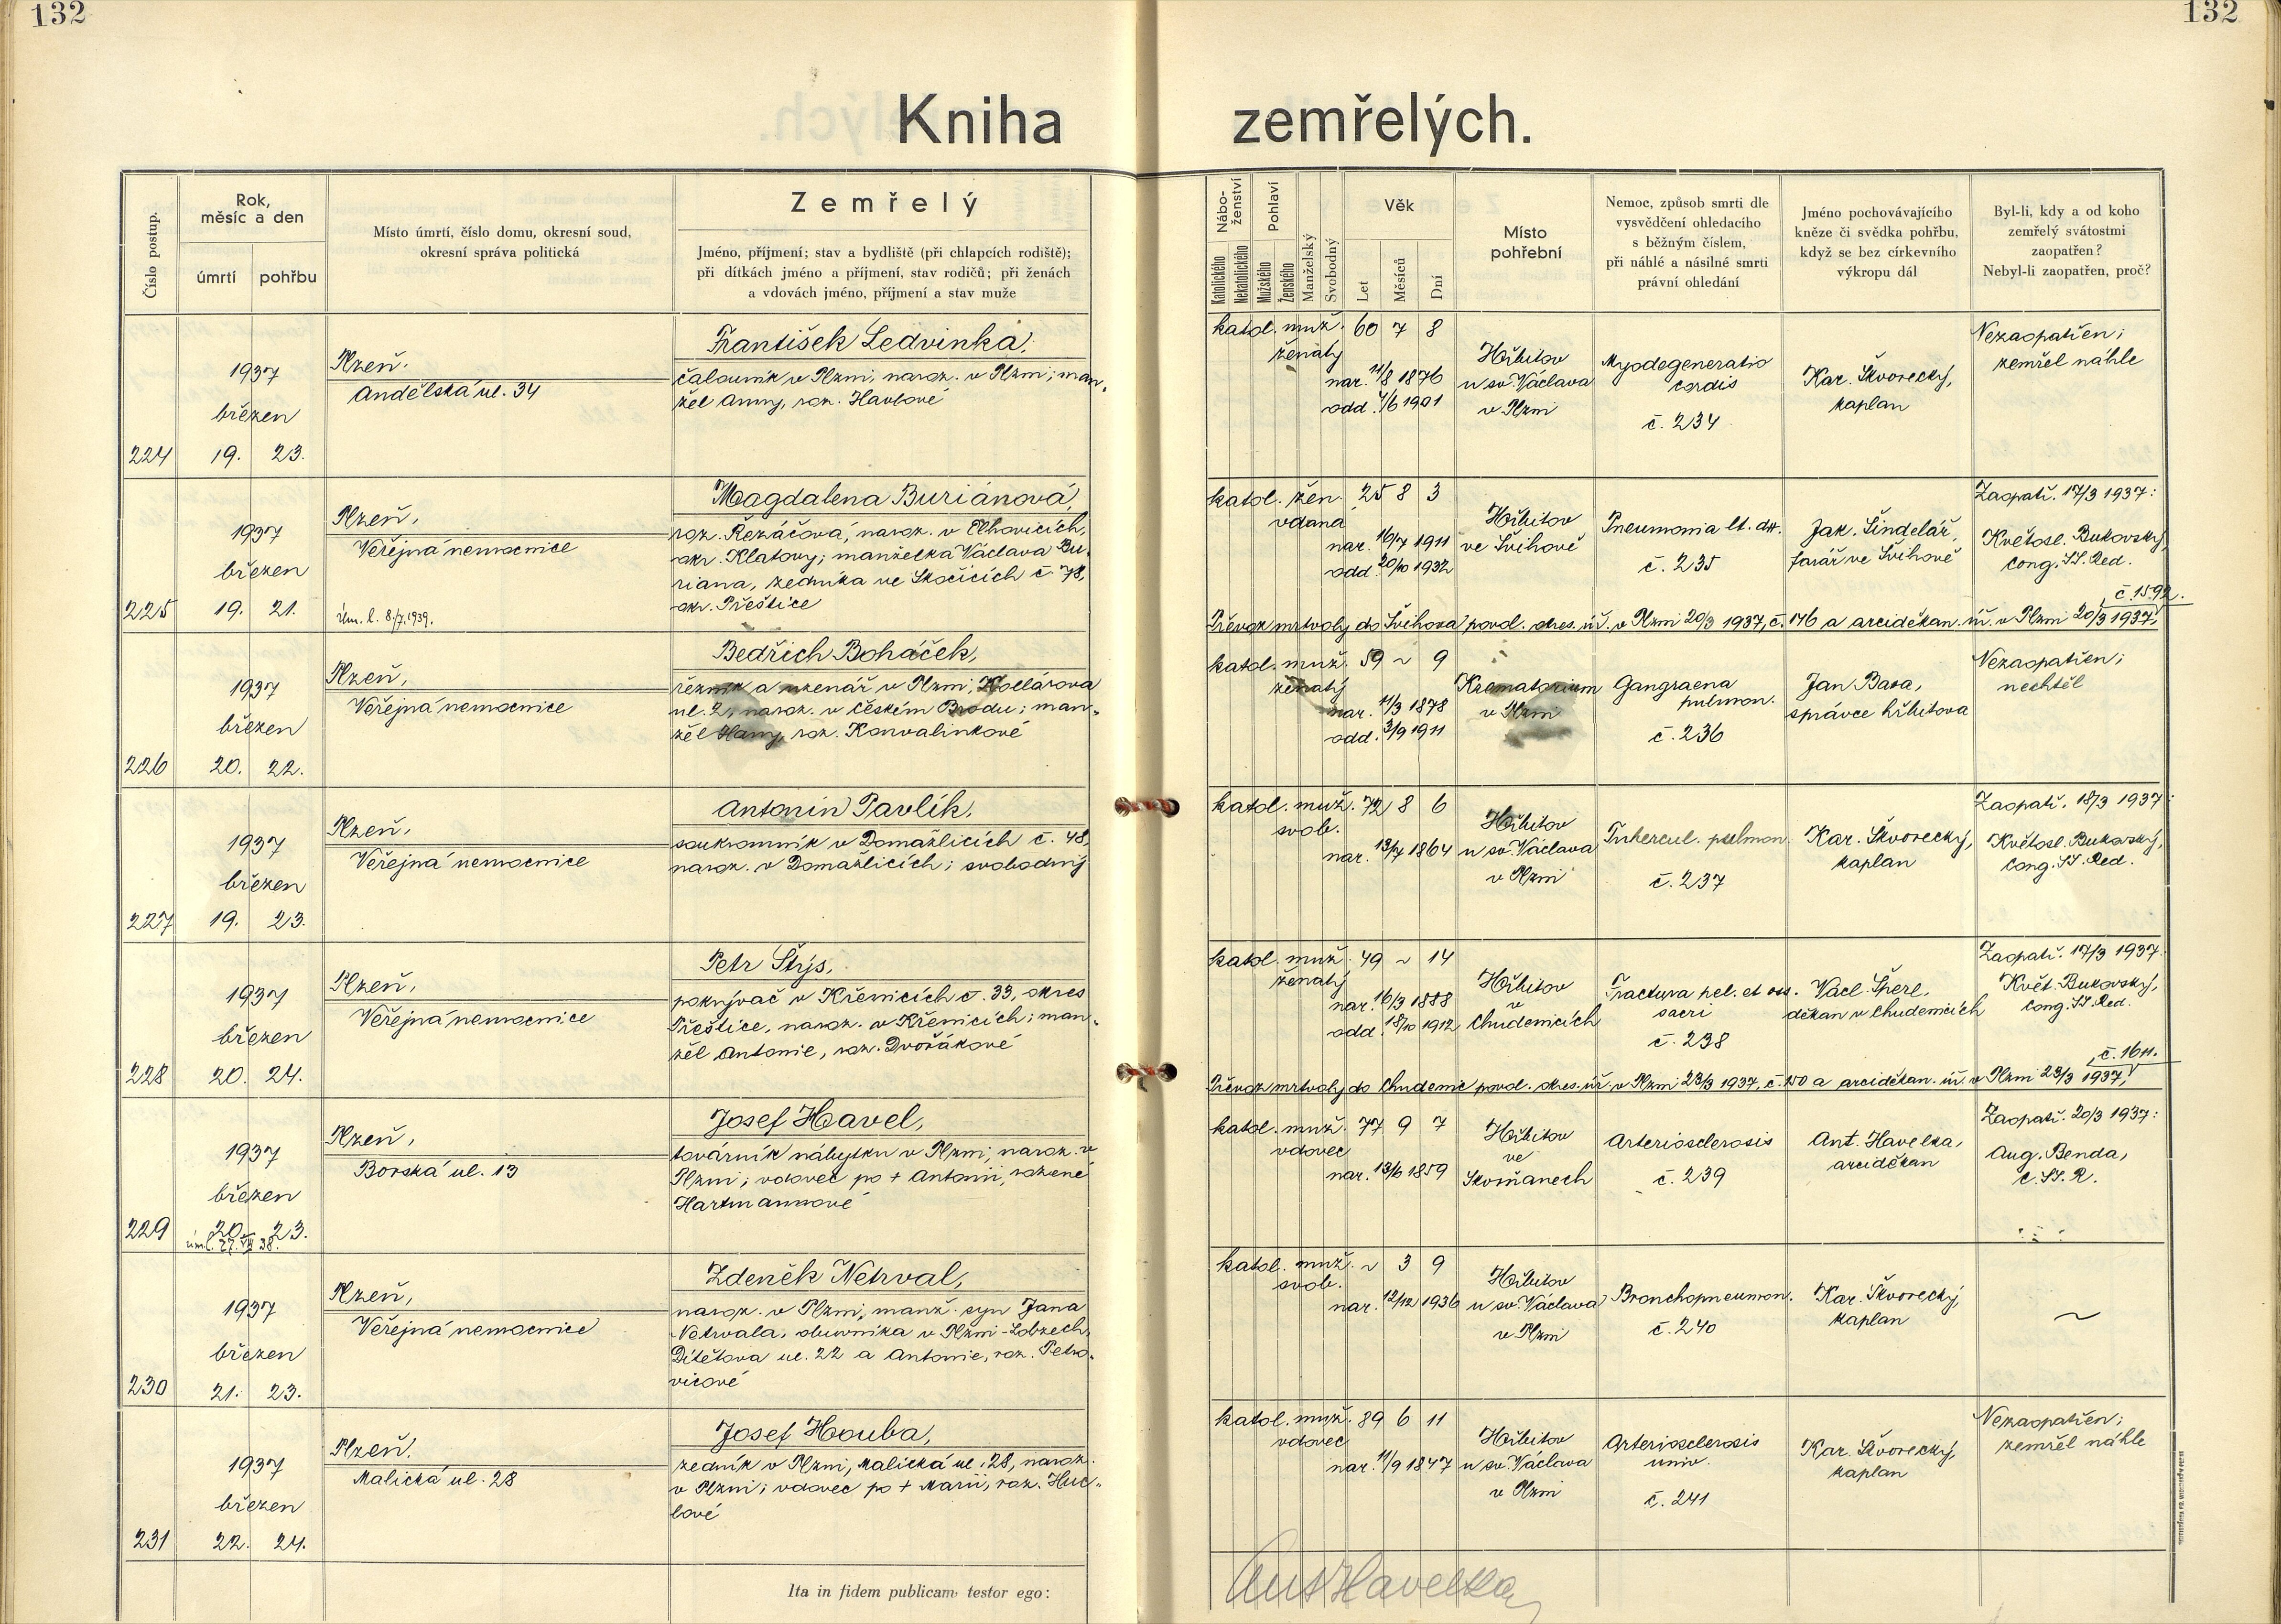 132
132
Kniha zemřelých.
Číslo postup.
Rok,
měsíc a den
úmrtí
pohřbu
Místo úmrtí, číslo domu, okresní soud,
okresní správa politická
Zemřelý
Jméno, příjmení; stav a bydliště (při chlapcích rodiště);
při dítkách jméno a příjmení, stav rodičů; při ženách
a vdovách jméno, příjmení a stav muže
Nábo-
ženství
Katolického
Nekatolického
Pohlaví
Mužského
Ženského
Manželský
Svobodný
Věk
Let
Měsíců
Dní
Místo
pohřební
Nemoc, způsob smrti dle
vysvědčení ohledacího
s běžným číslem,
při náhlé a násilné smrti
právní ohledání
Jméno pochovávajícího
kněze či svědka pohřbu,
když se bez církevního
výkropu dál
Byl-li, kdy a od koho
zemřelý svátostmi
zaopatřen?
Nebyl-li zaopatřen, proč?
224
1937
březen
19. 23.
Plzeň,
Andělská ul. 34
František Ledvinka,
čalouník v Plzni, naroz. v Plzni; man-
žel Anny, roz. Havlové
katol. muž. 60 7 8
ženatý
nar. 11/8 1876
odd. 4/6 1901
Hřbitov
u sv. Václava
v Plzni
Myodegeneratio
cordis
č. 234
Kar. Škvorecký,
kaplan
Nezaopatřen;
zemřel náhle
225
1937
březen
19. 21.
Plzeň,
Veřejná nemocnice
úm. l. 8./7.1939.
Magdalena Buriánová,
roz. Řezáčová, naroz. v Elhovicích,
okr. Klatovy; manželka Václava Bu-
riana, zedníka ve Skočicích č. 78,
okr. Přeštice
katol. žen. 25 8 3
vdaná
nar. 16/7 1911
odd. 20/10 1932
Hřbitov
ve Švihově
Pneumonia lt. dtt.
č. 235
Jak. Šindelář,
farář ve Švihově
Zaopatř. 17/3 1937:
Květosl. Bukovský,
Cong. SS. Red.
č. 1592.
Převoz mrtvoly do Švihova povol. okres. úř. v Plzni 20/3 1937, č. 146 a arciděkan. úř. v Plzni 20/3 1937,
226
1937
březen
20. 22.
Plzeň,
Veřejná nemocnice
Bedřich Boháček,
řezník a uzenář v Plzni, Kollárova
ul. 2, naroz. v Českém Brodu; man-
žel Hany, roz. Konvalinkové
katol. muž. 59 ~ 9
ženatý
nar. 11/3 1878
odd. 3/9 1911
Krematorium
v Plzni
Gangraena
pulmon.
č. 236
Jan Basa,
správce hřbitova
Nezaopatřen;
nechtěl
227
1937
březen
19. 23.
Plzeň,
Veřejná nemocnice
Antonín Pavlík,
soukromník v Domažlicích č. 48,
naroz. v Domažlicích; svobodný
katol. muž. 72 8 6
svob.
nar. 13/7 1864
Hřbitov
u sv. Václava
v Plzni
Tubercul. pulmon.
č. 237
Kar. Škvorecký,
kaplan
Zaopatř. 18/3 1937:
Květosl. Bukovský,
Cong. SS. Red.
228
1937
březen
20. 24.
Plzeň,
Veřejná nemocnice
Petr Štýs,
pokrývač v Křenicích č. 33, okres
Přeštice, naroz. v Křenicích; man-
žel Antonie, roz. Dvořákové
katol. muž. 49 ~ 14
ženatý
nar. 16/3 1888
odd. 18/10 1912
Hřbitov
v
Chudenicích
Fractura pel. et oss.
sacri
č. 238
Václ. Šperl,
děkan v Chudenicích
Zaopatř. 17/3 1937:
Květ. Bukovský,
Cong. SS. Red.
č. 1611.
Převoz mrtvoly do Chudenic povol. okres. úř. v Plzni 23/3 1937, č. 150 a arciděkan. úř. v Plzni 23/3 1937,
229
1937
březen
20. 23.
úm. l. 27. VII 38.
Plzeň,
Borská ul. 13
Josef Havel,
továrník nábytku v Plzni, naroz. v
Plzni; vdovec po + Antonii, rozené
Hartmannové
katol. muž. 77 9 7
vdovec
nar. 13/6 1859
Hřbitov
ve
Skvrňanech
Arteriosclerosis
č. 239
Ant. Havelka,
arciděkan
Zaopatř. 20/3 1937:
Aug. Benda,
C. SS. R.
230
1937
březen
21. 23.
Plzeň,
Veřejná nemocnice
Zdeněk Netrval,
naroz. v Plzni, manž. syn Jana
Netrvala, obuvníka v Plzni-Lobzech,
Dítětova ul. 22 a Antonie, roz. Petro-
vicové
katol. muž. ~ 3 9
svob.
nar. 12/12 1936
Hřbitov
u sv. Václava
v Plzni
Bronchopneumon.
č. 240
Kar. Škvorecký,
kaplan
~
231
1937
březen
22. 24.
Plzeň,
Malická ul. 28
Josef Houba,
zedník v Plzni, Malická ul. 28, naroz.
v Plzni; vdovec po + Marii, roz. Huc-
lové
katol. muž. 89 6 11
vdovec
nar. 11/9 1847
Hřbitov
u sv. Václava
v Plzni
Arteriosclerosis
univ.
č. 241
Kar. Škvorecký,
kaplan
Nezaopatřen;
zemřel náhle
Ita in fidem publicam testor ego:
Ant Havelka